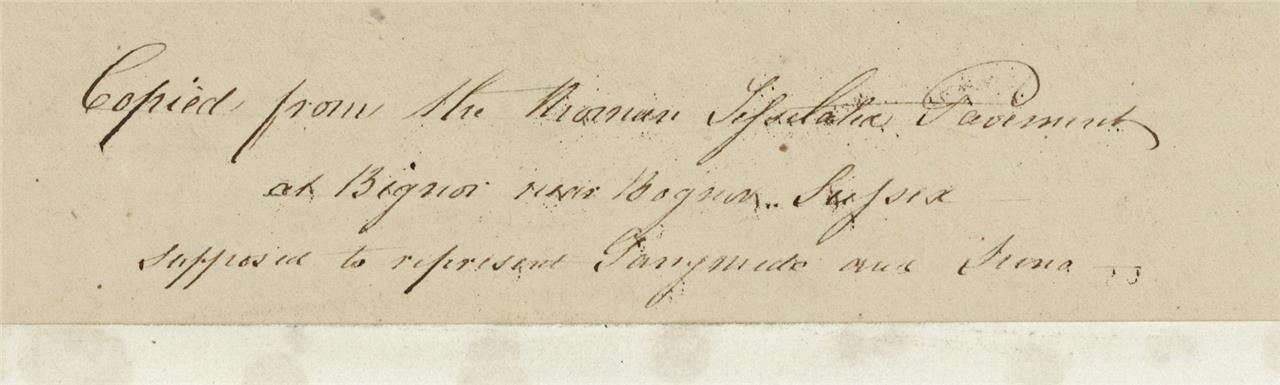 Copied from the Roman Tesselated Pavement
at Bignor near Bognor.. Sussex
supposed to represent Ganymede and Juno